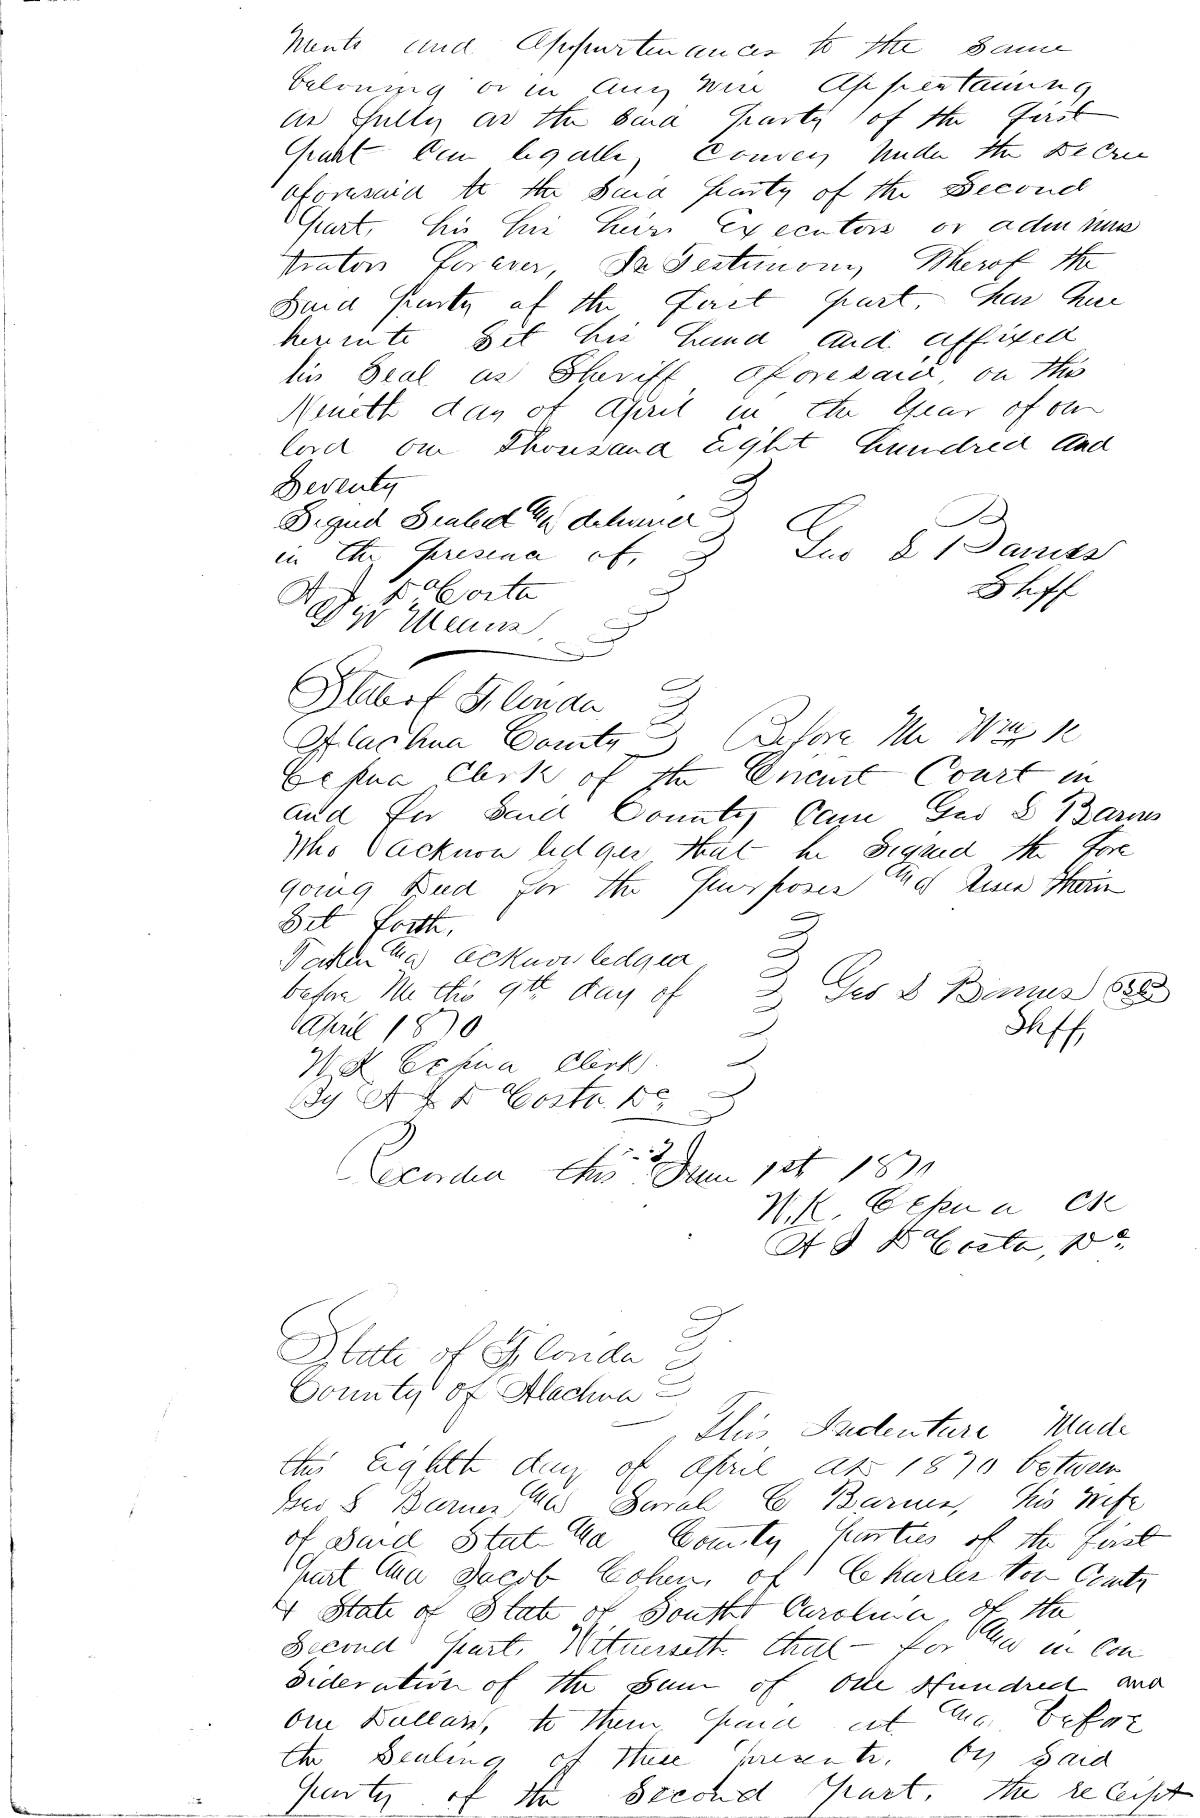 ments and Appurtenances to the same
beloning or in any wise Appertaining
as fully as the said party of the first
part can legally convey under the Decree
aforesaid to the said party of the Second
part, his his heirs Executors or adminis
trators forever, In Testimony Wherof the
Said party of the first part, has here
hereunto Set his hand and affixed
his Seal as Sheriff aforesaid, on this
Nineth day of April in the Year of our
lord one Thousand Eight hundred and
Seventy
Signed Sealed and delivered
in the presence of, Geo S Barnes
A J DaCosta Shff
W Means
State of Florida
Alachua County Before Me Wm K
Cessna Clerk of the Circuit Court in
and for Said County Came Geo S Barnes
Who acknowledges that he Signed the fore
going Deed for the purposes and Uses therin
Set forth,
Taken and acknowledged
before Me this 9th day of Geo S Barnes
April 1870 Shff,
W K Cessna Clerk
By A J DaCosta. DC
Recorded this June 1st 1870
W. K. Cessna Clk
A J DaCosta, DC
State of Florida
County of Alachua
This Indenture Made
this Eighth day of April AD 1870 between
Geo S Barnes and Sarah C Barnes, his Wife
of Said State and County parties of the first
part and Jacob Cohen, of Charleston County
& State of State of South Carolina of the
Second part, Witnesseth that - for and in con
sideration of the Sum of One Hundred and
One Dollars, to them paid at and before
the Sealing of these presents, by Said
party of the Second part, the receipt